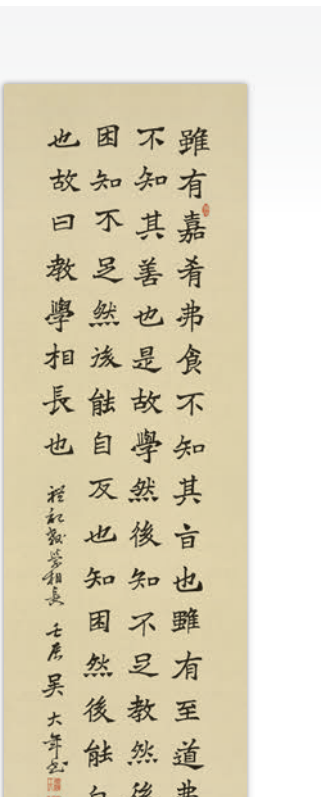 雖有嘉肴弗食不知其旨也雖有至道弗
不知其善也是故學然後知不足教然後
困知不足然後能自反也知困然後能自
也故曰教學相長也 禮記教學相長 壬辰 吴大年书